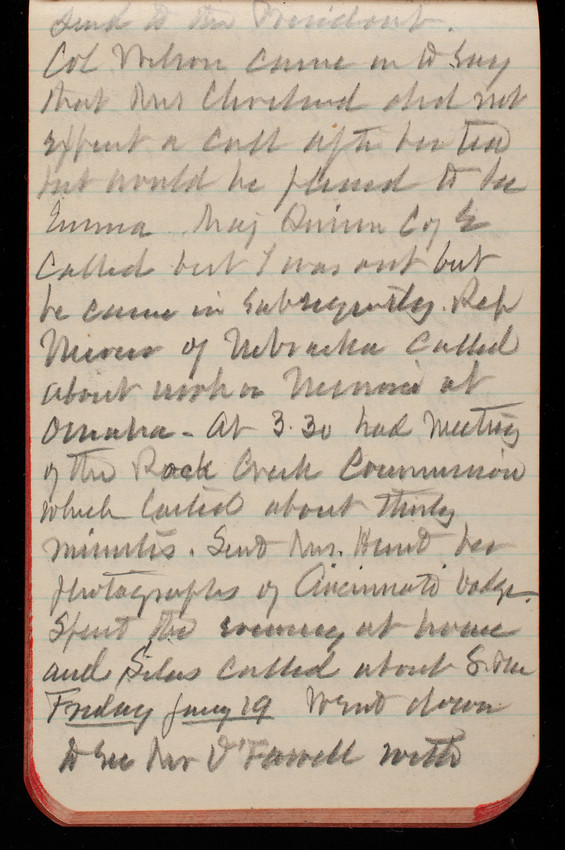 send to the President.
Col Wilson came in to say
that Mrs Cleveland did not
expect a call after her tea
but would be pleased to see
Emma. Maj Quinn C of E
called but I was out but
he came in subsequently. Rep
Mercer of Nebraska called
about work on at
Omaha - At 3.30 had meeting
of the Rock Creek Commission
which lasted about thirty
minutes. Sent Mrs. Hunt her
photographs of Cincinnati badge.
Spent the evening at home
and Silas called about
Friday Jany 19 Went down
to see Mr O'Farrell with